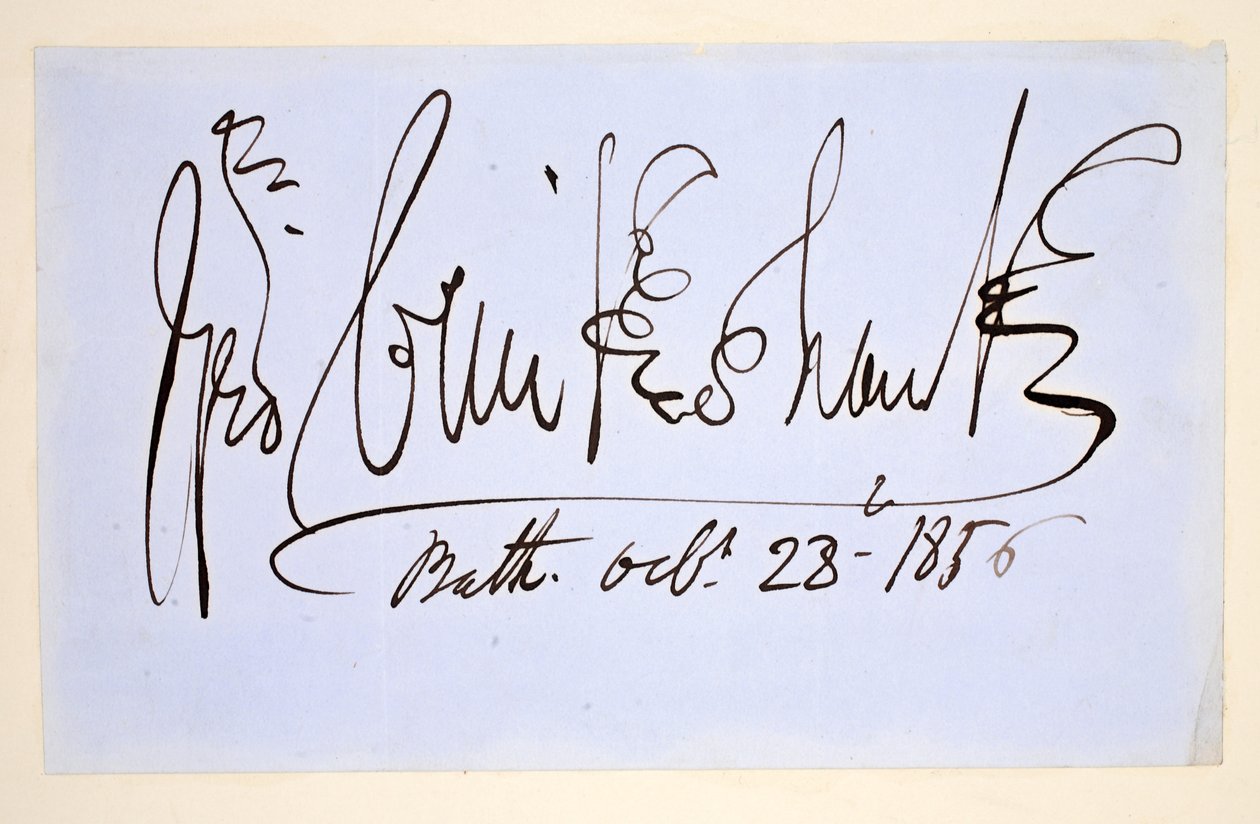 Geo. Cruikshank
Bath. Octr. 28 - 1856